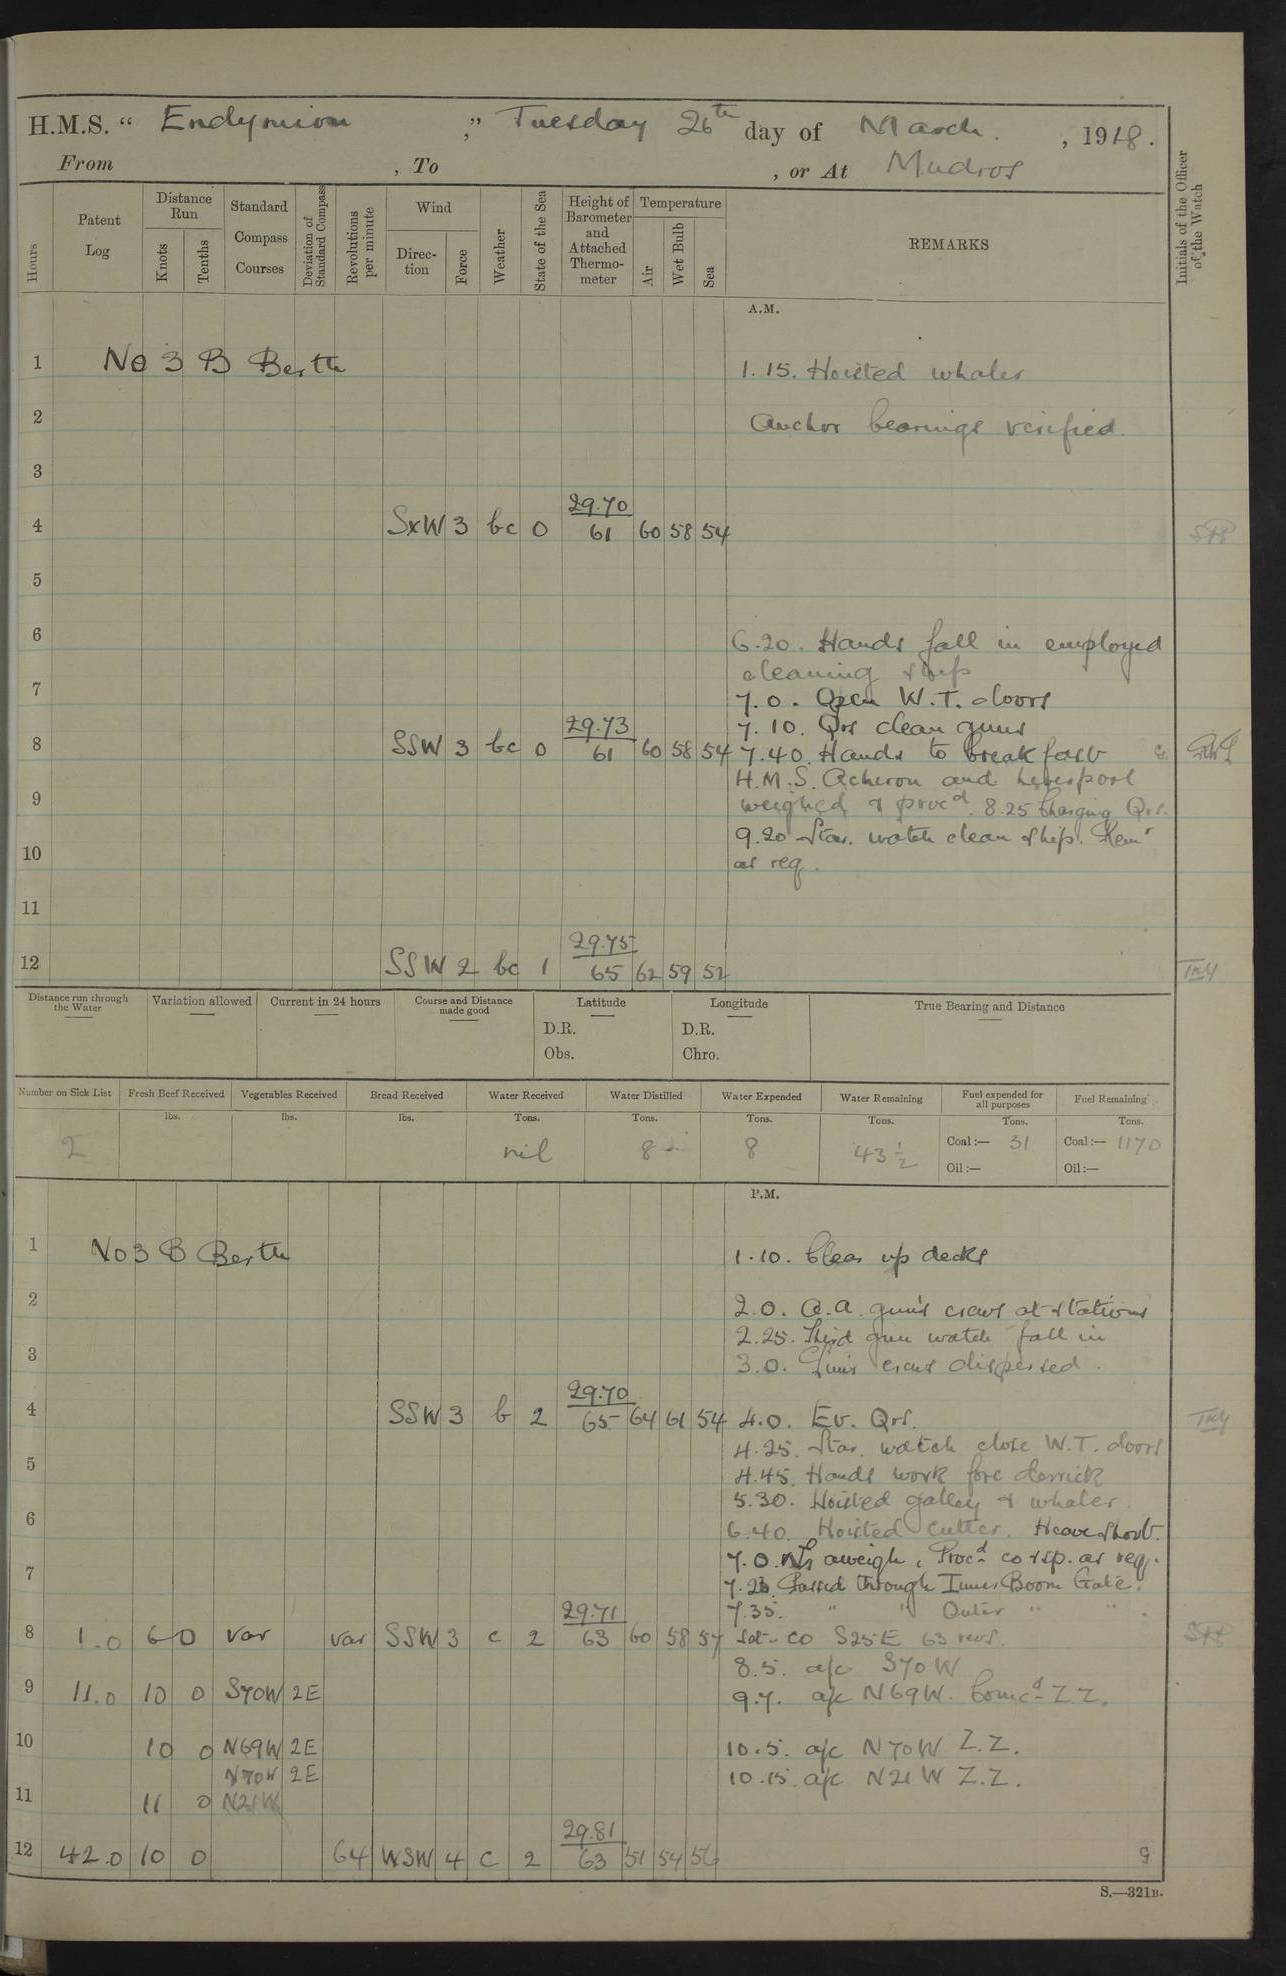 H.M.S. “ Endymion ,” Tuesday 26th day of March. , 1918.
From , To , or At Mudros
Hours
Patent Log
Distance Run
Knots
Tenths
Standard Compass Courses
Deviation of Standard Compass
Revolutions per minute
Wind
Direc-tion
Force
Weather
State of the Sea
Height of Barometer and Attached Thermo-meter
Temperature
Air
Wet Bulb
Sea
REMARKS
Initials of the Officer of the Watch
A.M.
1 No 3 B Berth 1.15. Hoisted whaler
2 Anchor bearings verified
3
29.70
4 SxW 3 bc 0 61 60 58 54
5
6 6.20. Hands fall in employed
cleaning ship
7 7.0. Open W.T. doors
29.73 7.10. Qrs clean guns
8 SSW 3 bc 0 61 60 58 54 7.40. Hands to breakfast
H.M.S. Acheron and
9 weighed & procd. 8.25 Qrs.
9.20 Star. watch clean ship. Remr
10 as req.
11
29.75
12 SSW 2 bc 1 65 62 59 52 TKY
Distance run through the Water
Variation allowed
Current in 24 hours
Course and Distance made good
Latitude
D.R.
Obs.
Longitude
D.R.
Chro.
True Bearing and Distance
Number on Sick List
Fresh Beef Received
Vegetables Received
Bread Received
Water Received
Water Distilled
Water Expended
Water Remaining
Fuel expended for all purposes
Fuel Remaining
lbs. lbs. lbs. Tons. Tons. Tons. Tons. Tons. Tons.
2 nil 8 8 43 1/2 Coal:— 31 Coal:— 1170
Oil:— Oil:—
P.M.
1 No 3 B Berth 1.10. Clear up decks
2 2.0. A.A. gun's crews at stations
2.25. Third gun watch fall in
3 3.0. Gun's crews dispersed.
29.70
4 SSW 3 b 2 65 64 61 54 4.0. Ev. Qrs. TKY
4.25. Star. watch close W.T. doors
5 4.45. Hands work fore derrick
5.30. Hoisted galley & whaler.
6 6.40. Hoisted cutter. Heave short.
7.0. aweigh, Procd. co & sp. as req.
7 Passed through Inner Boom Gate.
29.71 7.35. " " Outer " " .
8 1.0 6 0 var var SSW 3 c 2 63 60 58 57 Set co S25E 63 revs.
8.5. a/c S70W
9 11.0 10 0 S70W 2E 9.7. a/c N69W. Comcd Z.Z.
10 10 0 N69W 2E 10.5. a/c N70W Z.Z.
N70W 2E 10.15. a/c N21W Z.Z.
11 11 0 N21W
29.81
12 42.0 10 0 64 WSW 4 c 2 63 51 54 56 9
S.—321B.